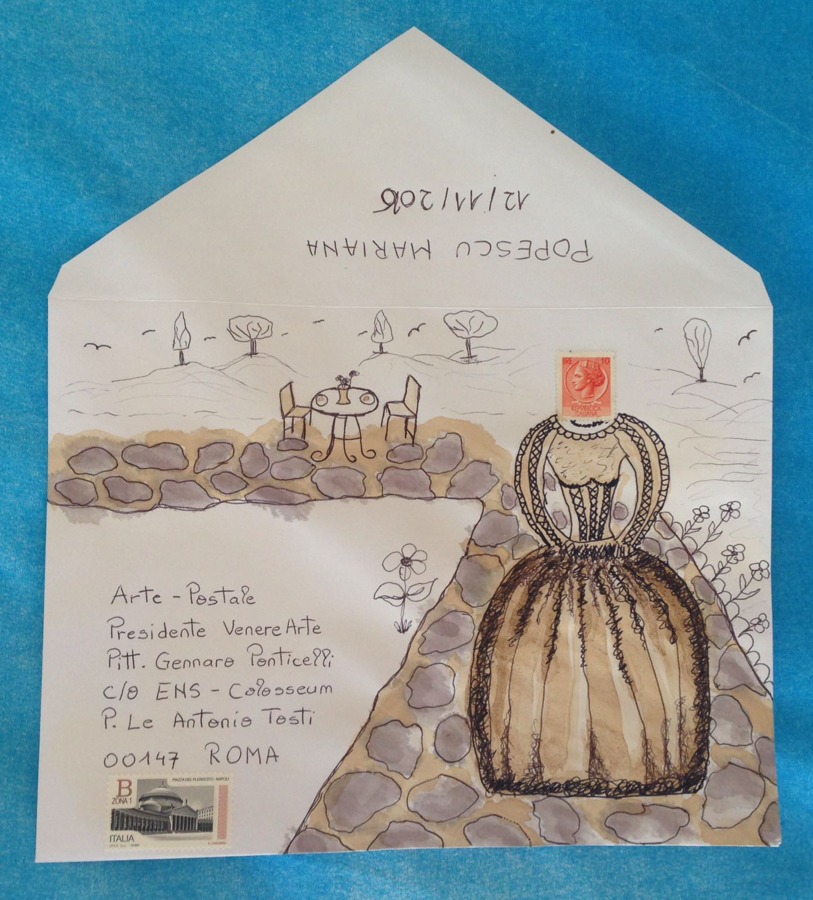 12/11/2015
POPESCU MARIANA
Arte - Postale
Presidente Venere Arte
Pitt. Gennaro Ponticelli
c/o ENS - Colosseum
P. Le Antonio Tosti
00147 ROMA
PIAZZA DEL PLEBISCITO - NAPOLI
B
ZONA 1
ITALIA
10